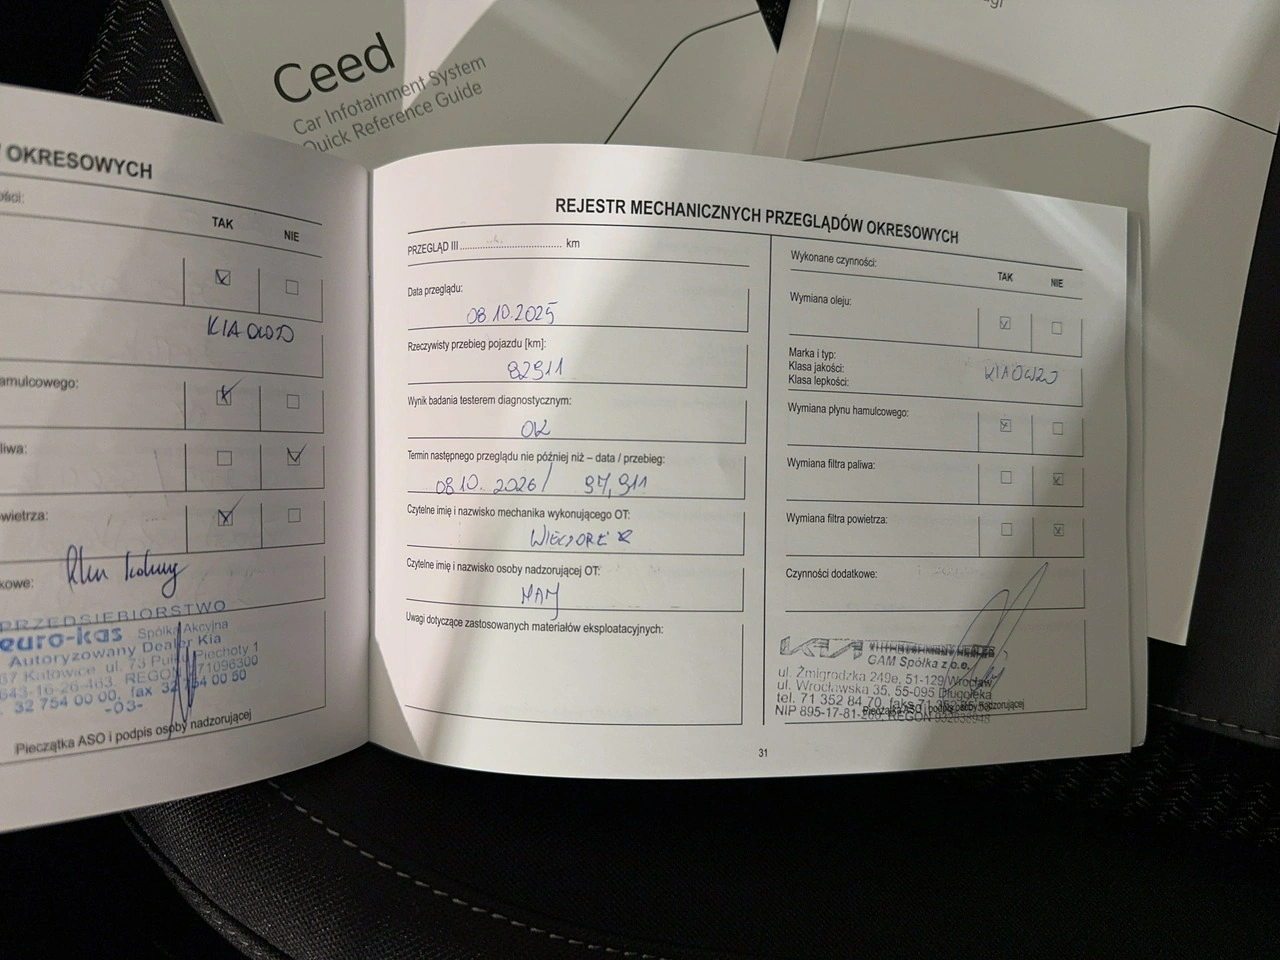 Ceed
Car Infotainment System
Quick Reference Guide
OKRESOWYCH
TAK NIE
KIA 0W20
amulcowego:
liwa:
owietrza:
kowe:
PRZEDSIĘBIORSTWO
euro-kas Spółka Akcyjna
Autoryzowany Dealer Kia
Katowice ul. 73 Pułku Piechoty 1
643-16-26-463, REGON 71096300
32 754 00 00, fax 32 754 00 50
-03-
Pieczątka ASO i podpis osoby nadzorującej
REJESTR MECHANICZNYCH PRZEGLĄDÓW OKRESOWYCH
PRZEGLĄD III .......... km
Data przeglądu:
08.10.2025
Rzeczywisty przebieg pojazdu [km]:
82911
Wynik badania testerem diagnostycznym:
OK
Termin następnego przeglądu nie później niż – data / przebieg:
08.10.2026 / 97,911
Czytelne imię i nazwisko mechanika wykonującego OT:
Czytelne imię i nazwisko osoby nadzorującej OT:
Uwagi dotyczące zastosowanych materiałów eksploatacyjnych:
Wykonane czynności:
TAK NIE
Wymiana oleju:
Marka i typ:
Klasa jakości:
Klasa lepkości:
KIA 0W20
Wymiana płynu hamulcowego:
Wymiana filtra paliwa:
Wymiana filtra powietrza:
Czynności dodatkowe:
KIA
GAM Spółka z o.o.
ul. Żmigrodzka 249e, 51-129 Wrocław
ul. Wrocławska 35, 55-095 Długołęka
tel. 71 352 84 70
NIP 895-17-81-560 REGON
Pieczątka ASO i podpis osoby nadzorującej
31